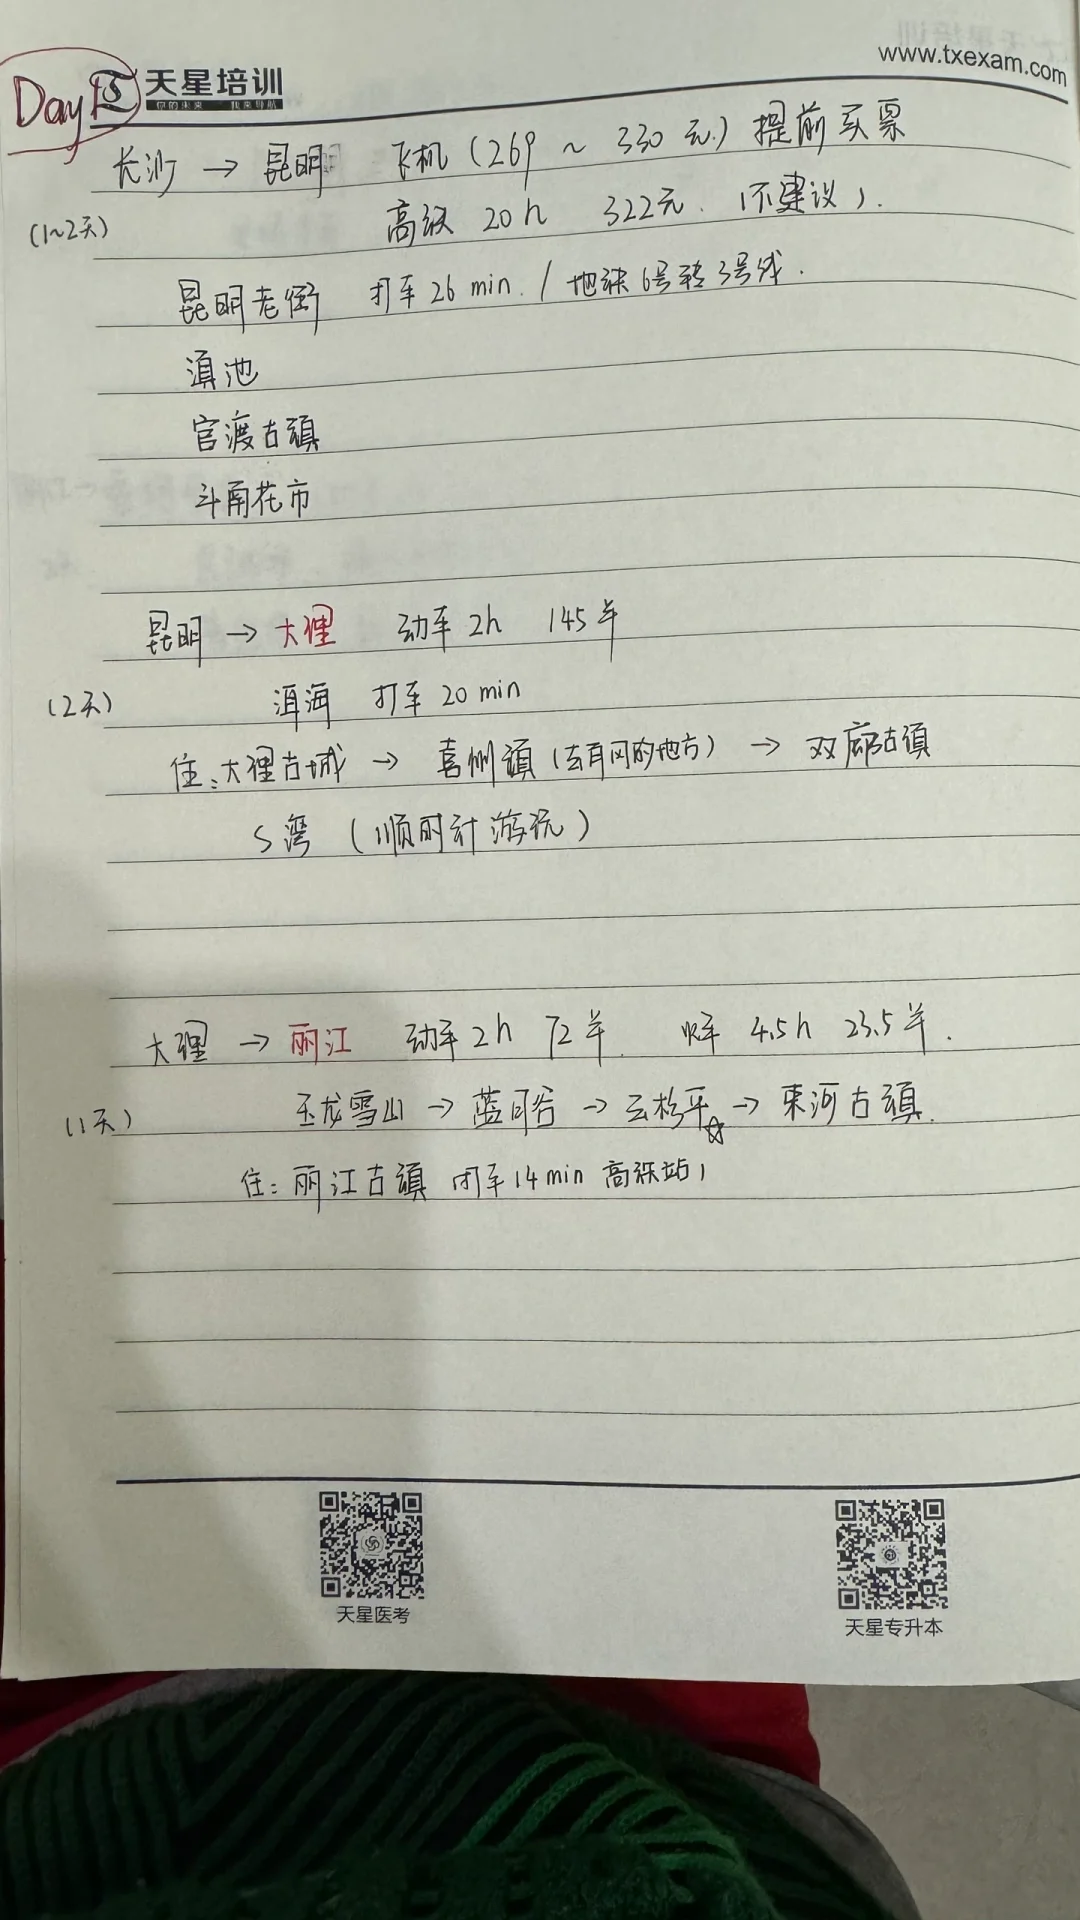 Day 5 天星培训
你的未来 我来导航
www.txexam.com
长沙 → 昆明 飞机 (269 ~ 330 元) 提前买票
(1~2天)
高铁 20h 322元. (不建议).
昆明老街 打车 26 min. / 地铁 6号转3号线.
滇池
官渡古镇
斗南花市
昆明 → 大理 动车 2h 145羊
(2天)
洱海 打车 20 min
住:大理古城 → 喜州镇 (去有风的地方) → 双廊古镇
S湾 (顺时针游玩)
大理 → 丽江 动车 2h 72羊. 火车 4.5h 23.5羊.
(1天)
玉龙雪山 → 蓝月谷 → 云杉平☆ → 束河古镇.
住:丽江古镇 打车14min 高铁站)
天星医考
天星专升本